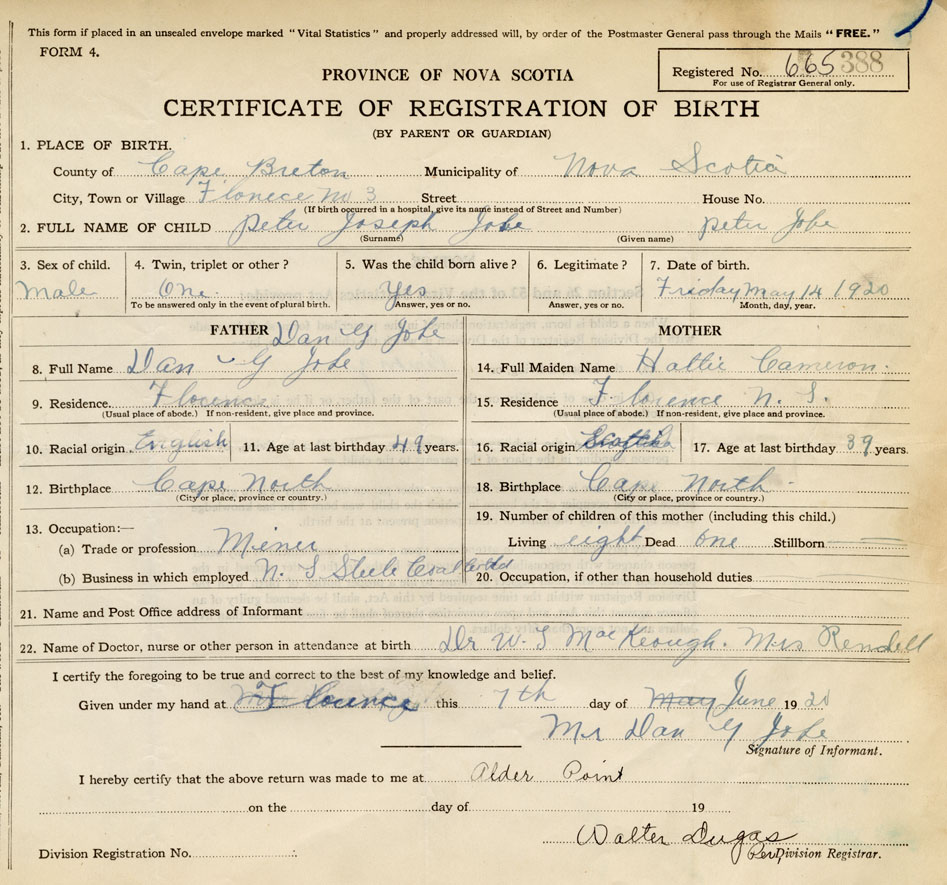 This form if placed in an unsealed envelope marked "Vital Statistics" and properly addressed will, by order of the Postmaster General pass through the Mails "FREE."
FORM 4.
Registered No. 665 388
For use of Registrar General only.
PROVINCE OF NOVA SCOTIA
CERTIFICATE OF REGISTRATION OF BIRTH
(BY PARENT OR GUARDIAN)
1. PLACE OF BIRTH.
County of Cape Breton Municipality of Nova Scotia
City, Town or Village Flornece No 3 Street House No.
(If birth occurred in a hospital, give its name instead of Street and Number)
2. FULL NAME OF CHILD Peter Joseph Jobe Peter Jobe
(Surname) (Given name)
3. Sex of child. 4. Twin, triplet or other? 5. Was the child born alive? 6. Legitimate? 7. Date of birth.
Male One Yes Friday May 14 1920
To be answered only in the event of plural birth. Answer, yes or no. Answer, yes or no. Month, day, year.
FATHER Dan G Jobe
8. Full Name Dan G Jobe
9. Residence. Florence
(Usual place of abode.) If non-resident, give place and province.
10. Racial origin English 11. Age at last birthday 49 years.
12. Birthplace Cape North
(City or place, province or country.)
13. Occupation:—
(a) Trade or profession Miner
(b) Business in which employed N. S Steele Coal
MOTHER
14. Full Maiden Name Hattie Cameron.
15. Residence Florence N. S.
(Usual place of abode.) If non-resident, give place and province.
16. Racial origin Scottish 17. Age at last birthday 39 years.
18. Birthplace Cape North
(City or place, province or country.)
19. Number of children of this mother (including this child.)
Living eight Dead One Stillborn
20. Occupation, if other than household duties
21. Name and Post Office address of Informant
22. Name of Doctor, nurse or other person in attendance at birth Dr W. S MacKeough. Mrs Rendell
I certify the foregoing to be true and correct to the best of my knowledge and belief.
Given under my hand at Flounce this 7th day of May June 1920
Mr Dan G Jobe
Signature of Informant.
I hereby certify that the above return was made to me at Alder Point
on the day of 19
Walter Dugas
Division Registration No. Per Division Registrar.